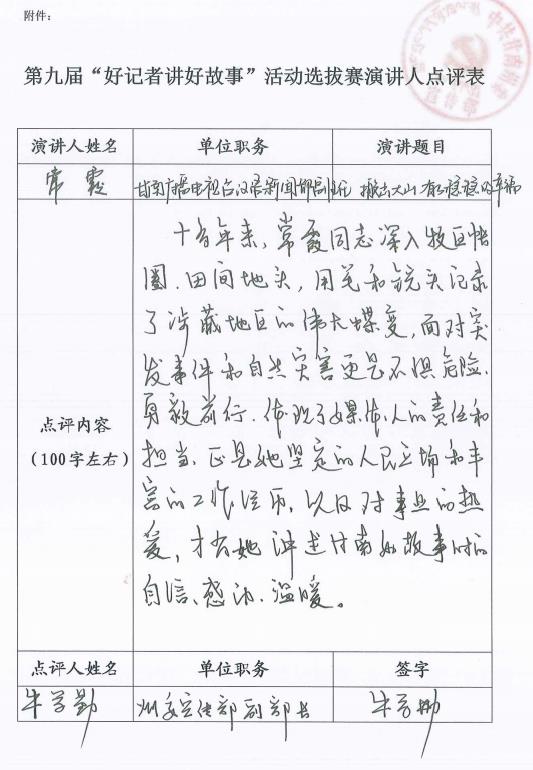 附件：
第九届“好记者讲好故事”活动选拔赛演讲人点评表
演讲人姓名 单位职务 演讲题目
常霞 甘南广播电视台汉语新闻部副主任 搬出大山 有稳稳的幸福
十多年来，常霞同志深入牧区帐
圈、田间地头，用笔和镜头记录
了涉藏地区的伟大蝶变，面对突
发事件和自然灾害更是不惧危险、
勇毅前行，体现了媒体人的责任和
点评内容
（100字左右）
担当，正是她坚定的人民立场和丰
富的工作经历，以及对事业的热
爱，才有她讲述甘南好故事时的
自信、感动、温暖。
点评人姓名 单位职务 签字
牛学勤 州委宣传部副部长 牛学勤